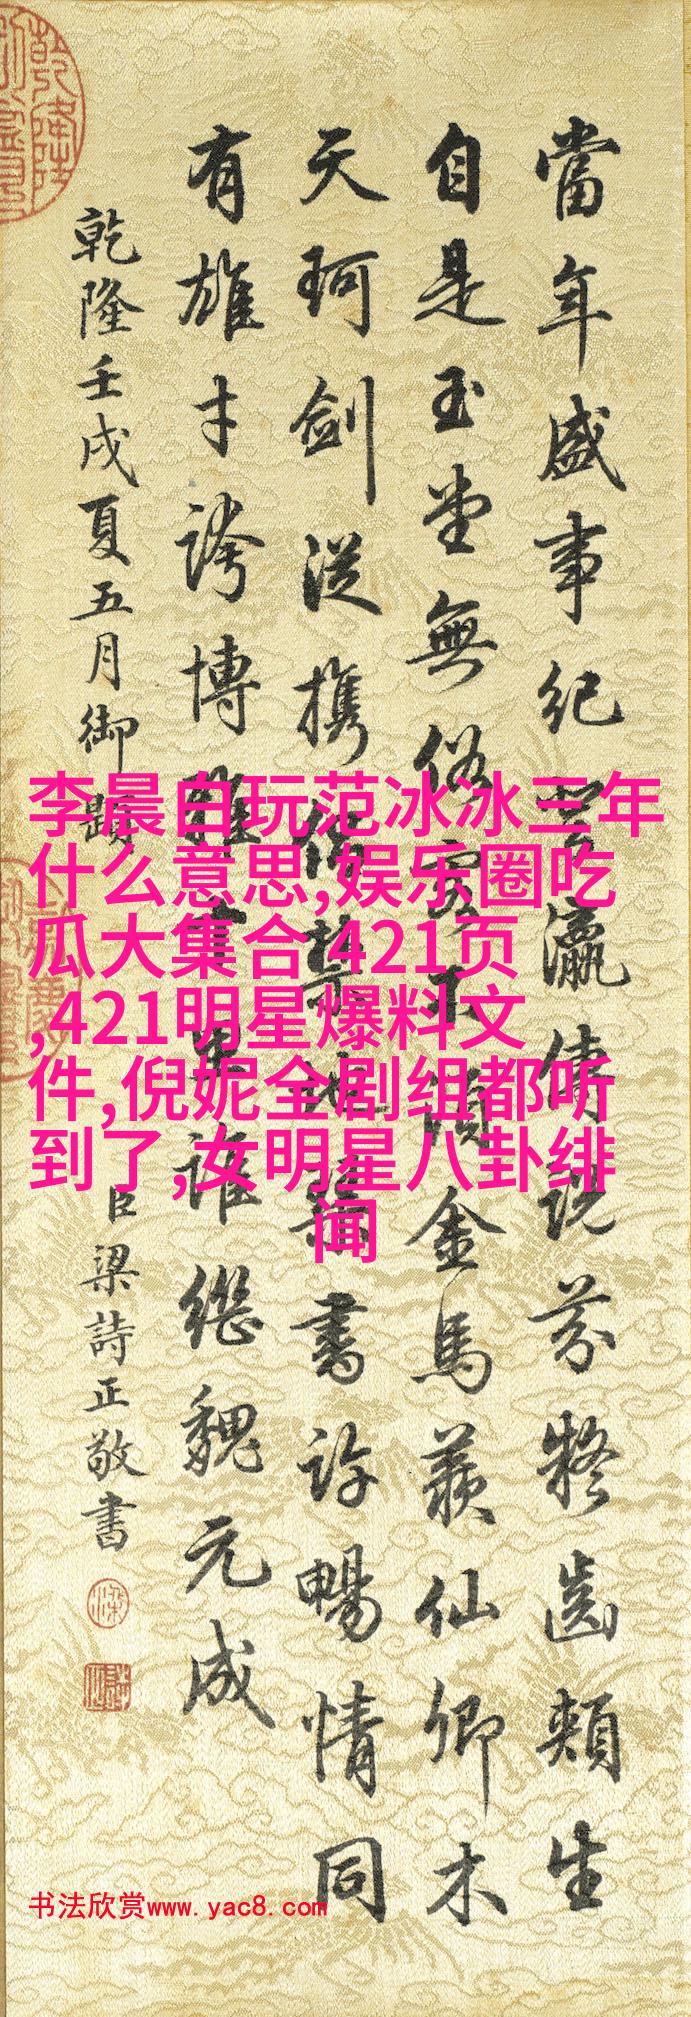 當年盛事紀瀛傳說芬齒頰生
自是玉堂無俗客不須金馬羨仙卿木
天珂劍從攜禁地書許暢情同
有雄才誇博誰繼魏元成
乾隆壬戌夏五月御題
臣梁詩正敬書
李晨白玩范冰冰三年
什么意思,娱乐圈吃
瓜大集合,421页
,421明星爆料文
件,倪妮全剧组都听
到了,女明星八卦绯
闻
书法欣赏www.yac8.com